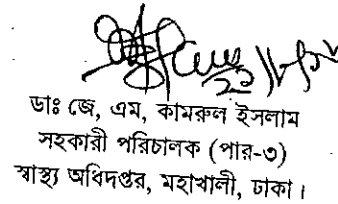 ডাঃ জে, এম, কামরুল ইসলাম
সহকারী পরিচালক (পার-৩)
স্বাস্থ্য অধিদপ্তর, মহাখালী, ঢাকা।